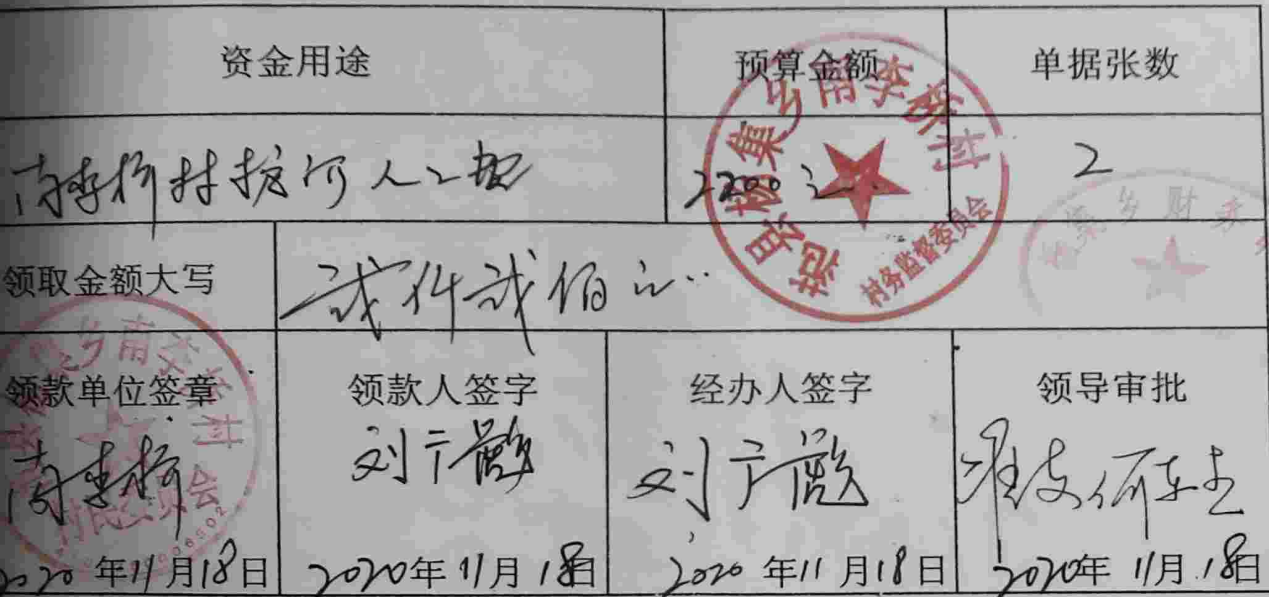 资金用途 预算金额 单据张数
南李桥村护河人工资 2200元 2
领取金额大写 贰仟贰佰元
领款单位签章 领款人签字 经办人签字 领导审批
南李桥 刘广 刘广 准支
2020年11月18日 2020年11月18日 2020年11月18日 2020年11月18日
范县杨集乡南李桥村
村务监督委员会
集乡财
乡南李桥村
村民委员会